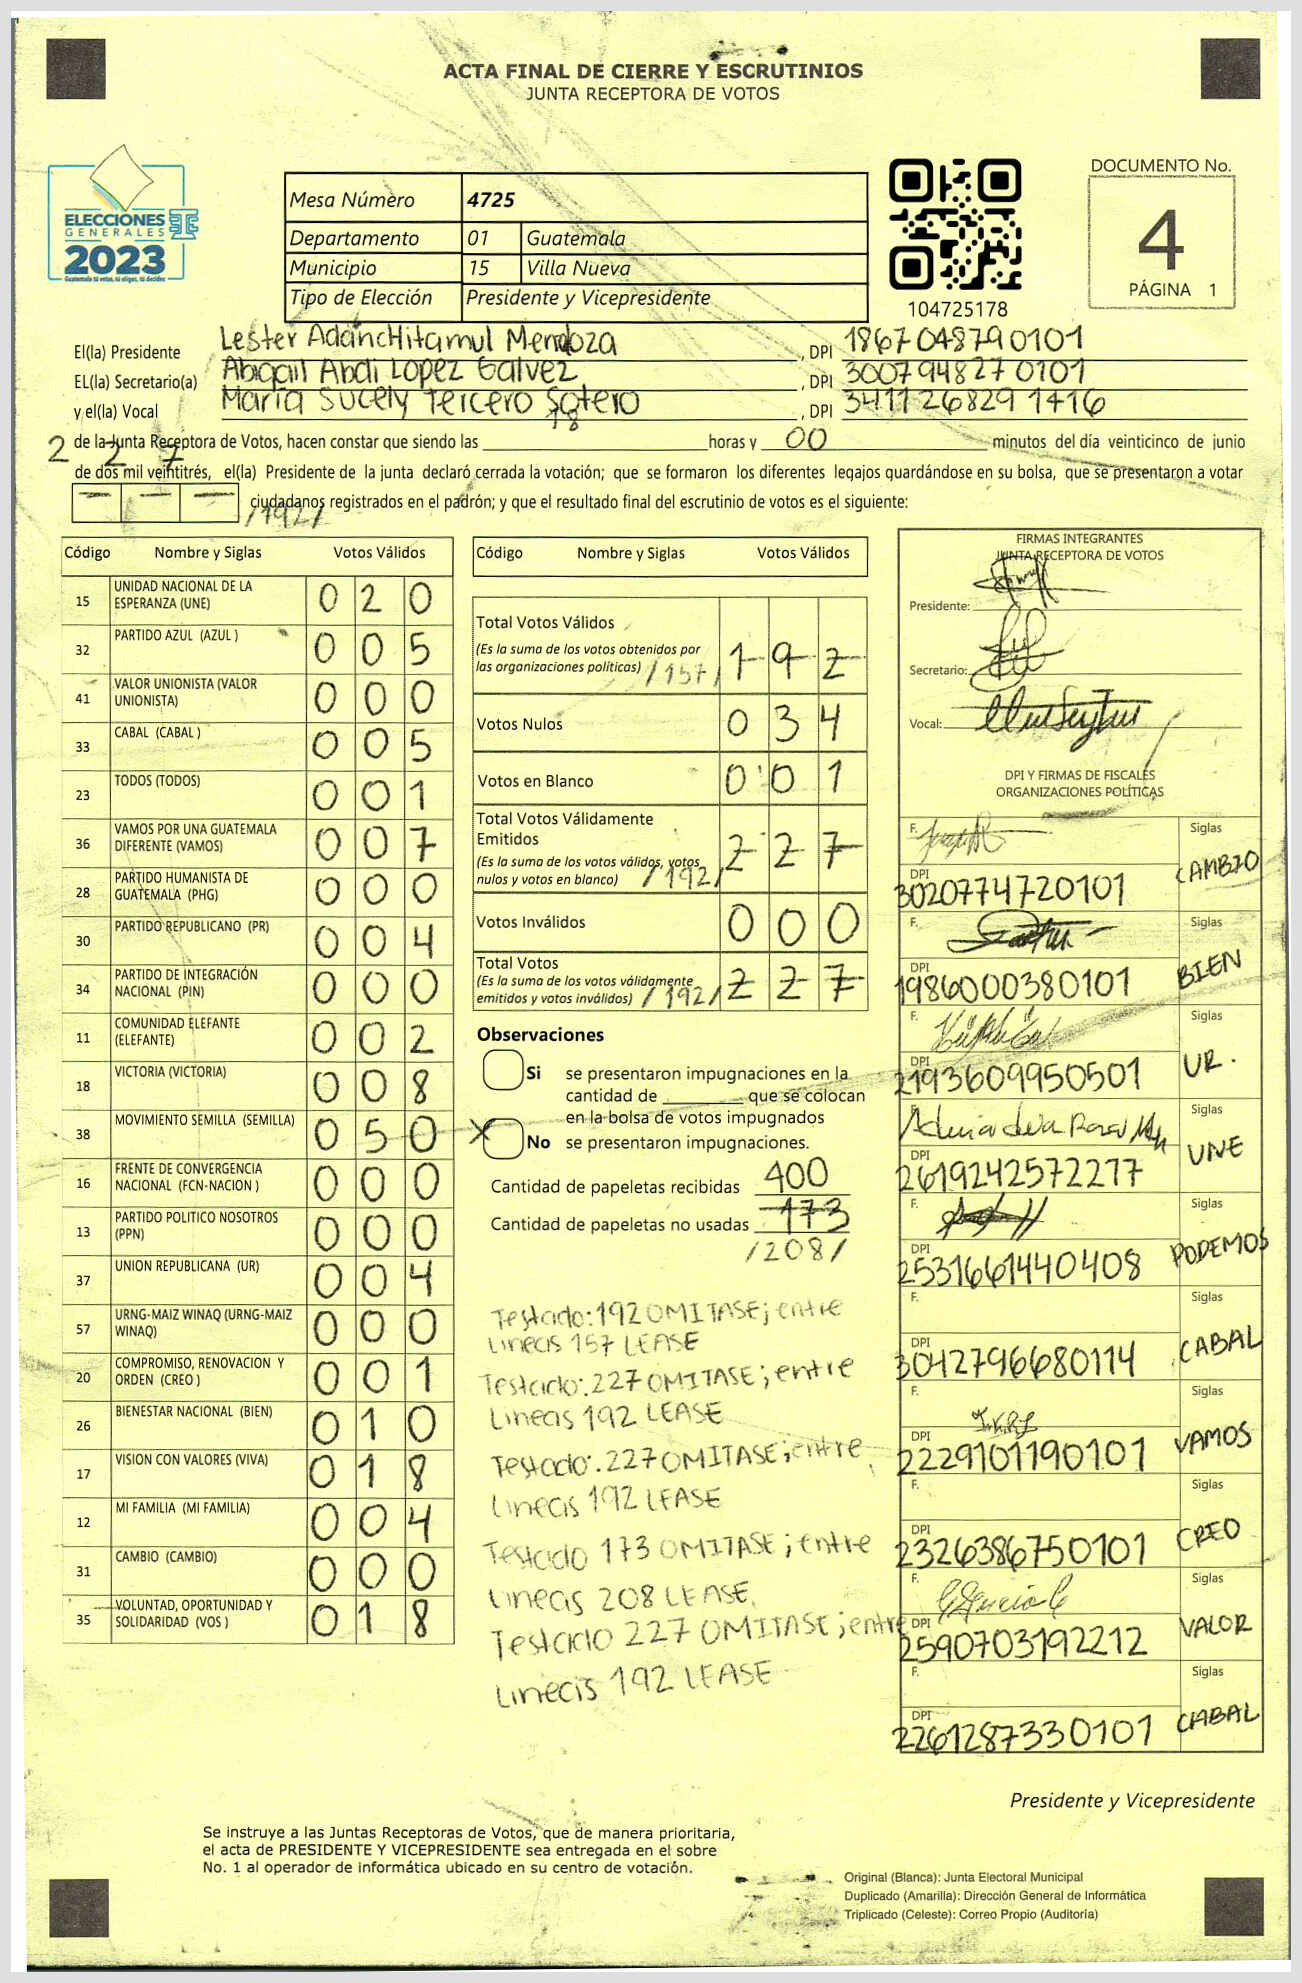 ACTA FINAL DE CIERRE Y ESCRUTINIOS
JUNTA RECEPTORA DE VOTOS
ELECCIONES
GENERALES
2023
Guatemala tú votas, tú eliges, tú decides
Mesa Número 4725
Departamento 01 Guatemala
Municipio 15 Villa Nueva
Tipo de Elección Presidente y Vicepresidente
104725178
DOCUMENTO No.
4
PÁGINA 1
El(la) Presidente Lester Adan Chitamul Mendoza, DPI 1867048790101
EL(la) Secretario(a) Abigail Abdi Lopez Galvez, DPI 3007948270101
y el(la) Vocal Maria Sucely Tercero Sotero, DPI 3411268291416
de la Junta Receptora de Votos, hacen constar que siendo las 18 horas y 00 minutos del día veinticinco de junio
2 2 7
de dos mil veintitrés, el(la) Presidente de la junta declaró cerrada la votación; que se formaron los diferentes legajos guardándose en su bolsa, que se presentaron a votar
— — — /192/ ciudadanos registrados en el padrón; y que el resultado final del escrutinio de votos es el siguiente:
Código Nombre y Siglas Votos Válidos
15 UNIDAD NACIONAL DE LA ESPERANZA (UNE) 0 2 0
32 PARTIDO AZUL (AZUL ) 0 0 5
41 VALOR UNIONISTA (VALOR UNIONISTA) 0 0 0
33 CABAL (CABAL ) 0 0 5
23 TODOS (TODOS) 0 0 1
36 VAMOS POR UNA GUATEMALA DIFERENTE (VAMOS) 0 0 7
28 PARTIDO HUMANISTA DE GUATEMALA (PHG) 0 0 0
30 PARTIDO REPUBLICANO (PR) 0 0 4
34 PARTIDO DE INTEGRACIÓN NACIONAL (PIN) 0 0 0
11 COMUNIDAD ELEFANTE (ELEFANTE) 0 0 2
18 VICTORIA (VICTORIA) 0 0 8
38 MOVIMIENTO SEMILLA (SEMILLA) 0 5 0
16 FRENTE DE CONVERGENCIA NACIONAL (FCN-NACION ) 0 0 0
13 PARTIDO POLITICO NOSOTROS (PPN) 0 0 0
37 UNION REPUBLICANA (UR) 0 0 4
57 URNG-MAIZ WINAQ (URNG-MAIZ WINAQ) 0 0 0
20 COMPROMISO, RENOVACION Y ORDEN (CREO ) 0 0 1
26 BIENESTAR NACIONAL (BIEN) 0 1 0
17 VISION CON VALORES (VIVA) 0 1 8
12 MI FAMILIA (MI FAMILIA) 0 0 4
31 CAMBIO (CAMBIO) 0 0 0
35 VOLUNTAD, OPORTUNIDAD Y SOLIDARIDAD (VOS ) 0 1 8
Código Nombre y Siglas Votos Válidos
Total Votos Válidos
(Es la suma de los votos obtenidos por
las organizaciones políticas) /157/ 1 9 2
Votos Nulos 0 3 4
Votos en Blanco 0 0 1
Total Votos Válidamente
Emitidos
(Es la suma de los votos válidos, votos
nulos y votos en blanco) /192/ 2 2 7
Votos Inválidos 0 0 0
Total Votos
(Es la suma de los votos válidamente
emitidos y votos inválidos) /192/ 2 2 7
Observaciones
Si se presentaron impugnaciones en la
cantidad de ________ que se colocan
en la bolsa de votos impugnados
X No se presentaron impugnaciones.
Cantidad de papeletas recibidas 400
Cantidad de papeletas no usadas 173
/208/
Testado: 192 OMITASE; entre
Lineas 157 LEASE
Testado: 227 OMITASE; entre
Lineas 192 LEASE
Testado: 227 OMITASE; entre
Lineas 192 LEASE
Testado 173 OMITASE; entre
Lineas 208 LEASE
Testado 227 OMITASE; entre
Lineas 192 LEASE
FIRMAS INTEGRANTES
JUNTA RECEPTORA DE VOTOS
Presidente:
Secretario:
Vocal:
DPI Y FIRMAS DE FISCALES
ORGANIZACIONES POLÍTICAS
F. Siglas
DPI 3020774720101 CAMBIO
F. Siglas
DPI 1986000380101 BIEN
F. Siglas
DPI 2193609950501 UR.
F. Siglas
DPI 2619242572217 UNE
F. Siglas
DPI 2531661440408 PODEMOS
F. Siglas
DPI 3042796680114 CABAL
F. Siglas
DPI 2229101190101 VAMOS
F. Siglas
DPI 2326386750101 CREO
F. Siglas
DPI 2590703192212 VALOR
F. Siglas
DPI 2261287330101 CABAL
Presidente y Vicepresidente
Se instruye a las Juntas Receptoras de Votos, que de manera prioritaria,
el acta de PRESIDENTE Y VICEPRESIDENTE sea entregada en el sobre
No. 1 al operador de informática ubicado en su centro de votación.
Original (Blanca): Junta Electoral Municipal
Duplicado (Amarilla): Dirección General de Informática
Triplicado (Celeste): Correo Propio (Auditoría)